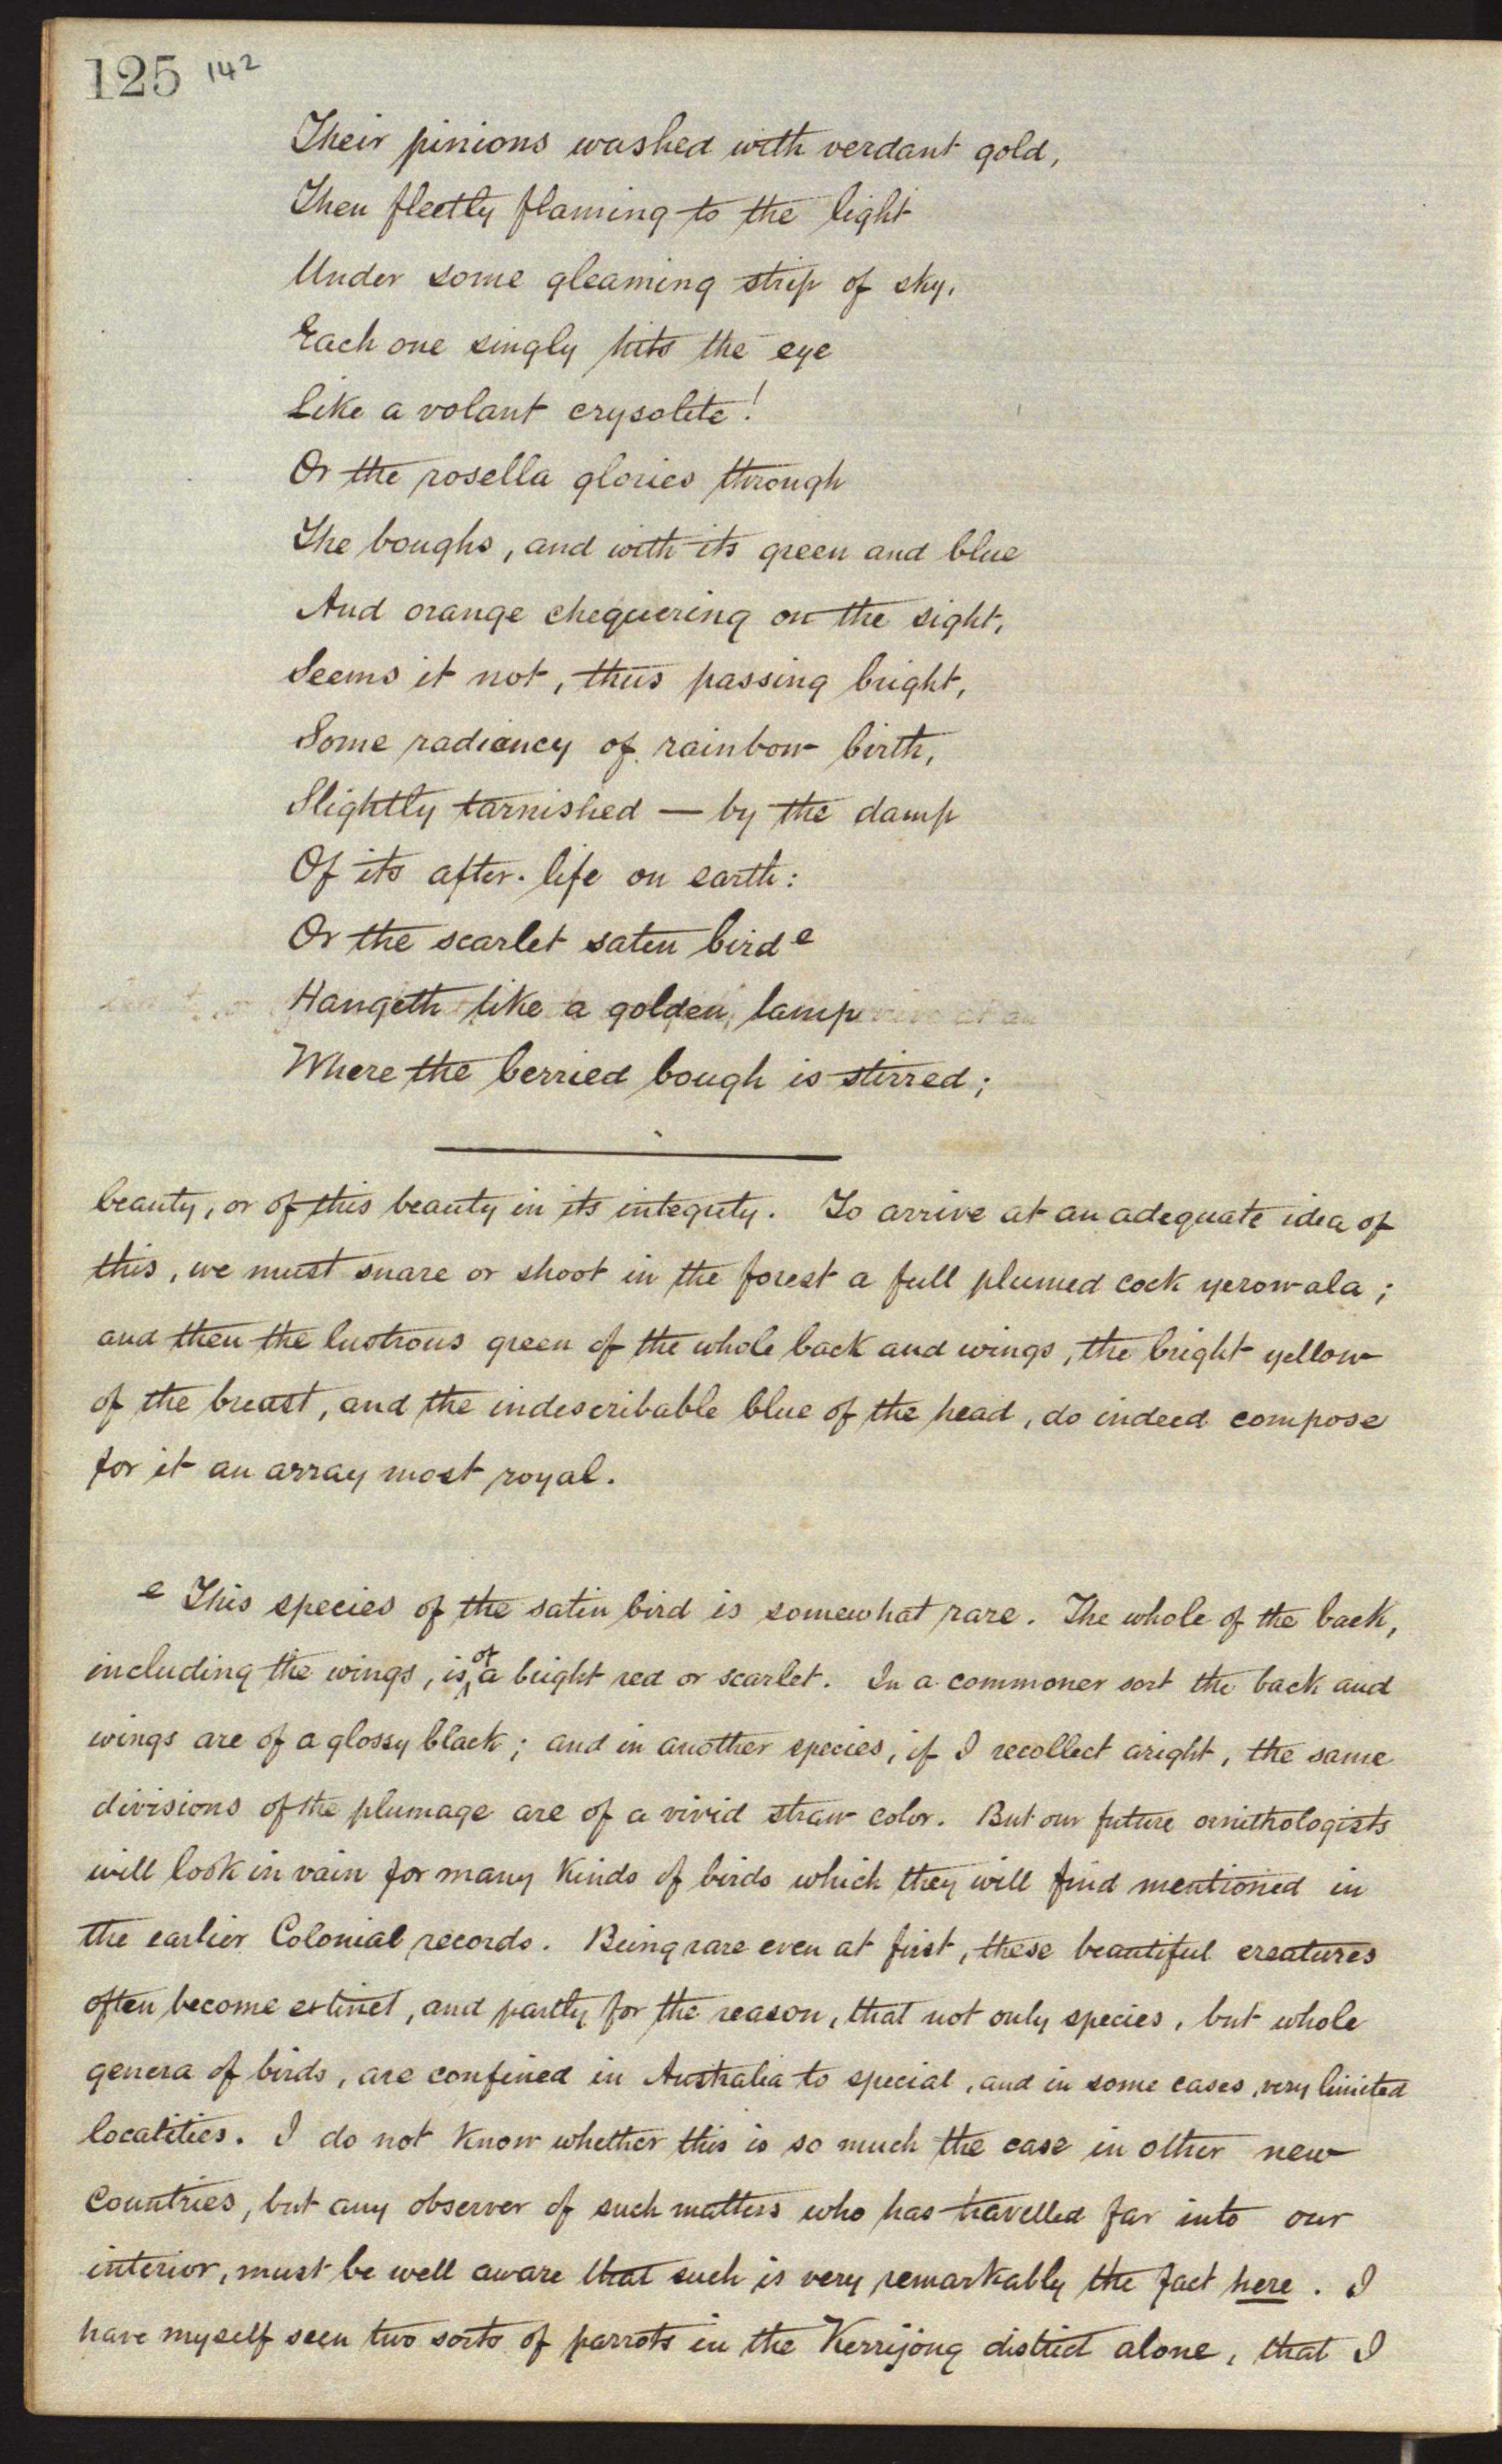 125 142
Their pinions washed with verdant gold,
Then fleetly flaming to the light
Under some gleaming strip of sky,
Each one singly hits the eye
Like a volant crysolite!
Or the rosella glories through
The boughs, and with its green and blue
And orange chequering on the sight,
Seems it not, thus passing bright,
Some radiancy of rainbow birth,
Slightly tarnished — by the damp
Of its after-life on earth:
Or the scarlet saten bird e
Hangeth like a golden lamp
Where the berried bough is stirred;
beauty, or of this beauty in its integrity. To arrive at an adequate idea of
this, we must snare or shoot in the forest a full plumed cock yerowala;
and then the lustrous green of the whole back and wings, the bright yellow
of the breast, and the indescribable blue of the head, do indeed compose
for it an array most royal.
e This species of the satin bird is somewhat rare. The whole of the back,
including the wings, is of a bright red or scarlet. In a commoner sort the back and
wings are of a glossy black; and in another species, if I recollect aright, the same
divisions of the plumage are of a vivid straw color. But our future ornithologists
will look in vain for many kinds of birds which they will find mentioned in
the earlier Colonial records. Being rare even at first, these beautiful creatures
often become extinct, and partly for the reason, that not only species, but whole
genera of birds, are confined in Australia to special, and in some cases, very limited
localities. I do not know whether this is so much the case in other new
Countries, but any observer of such matters who has travelled far into our
interior, must be well aware that such is very remarkably the fact here. I
have myself seen two sorts of parrots in the Kerrijong district alone, that I